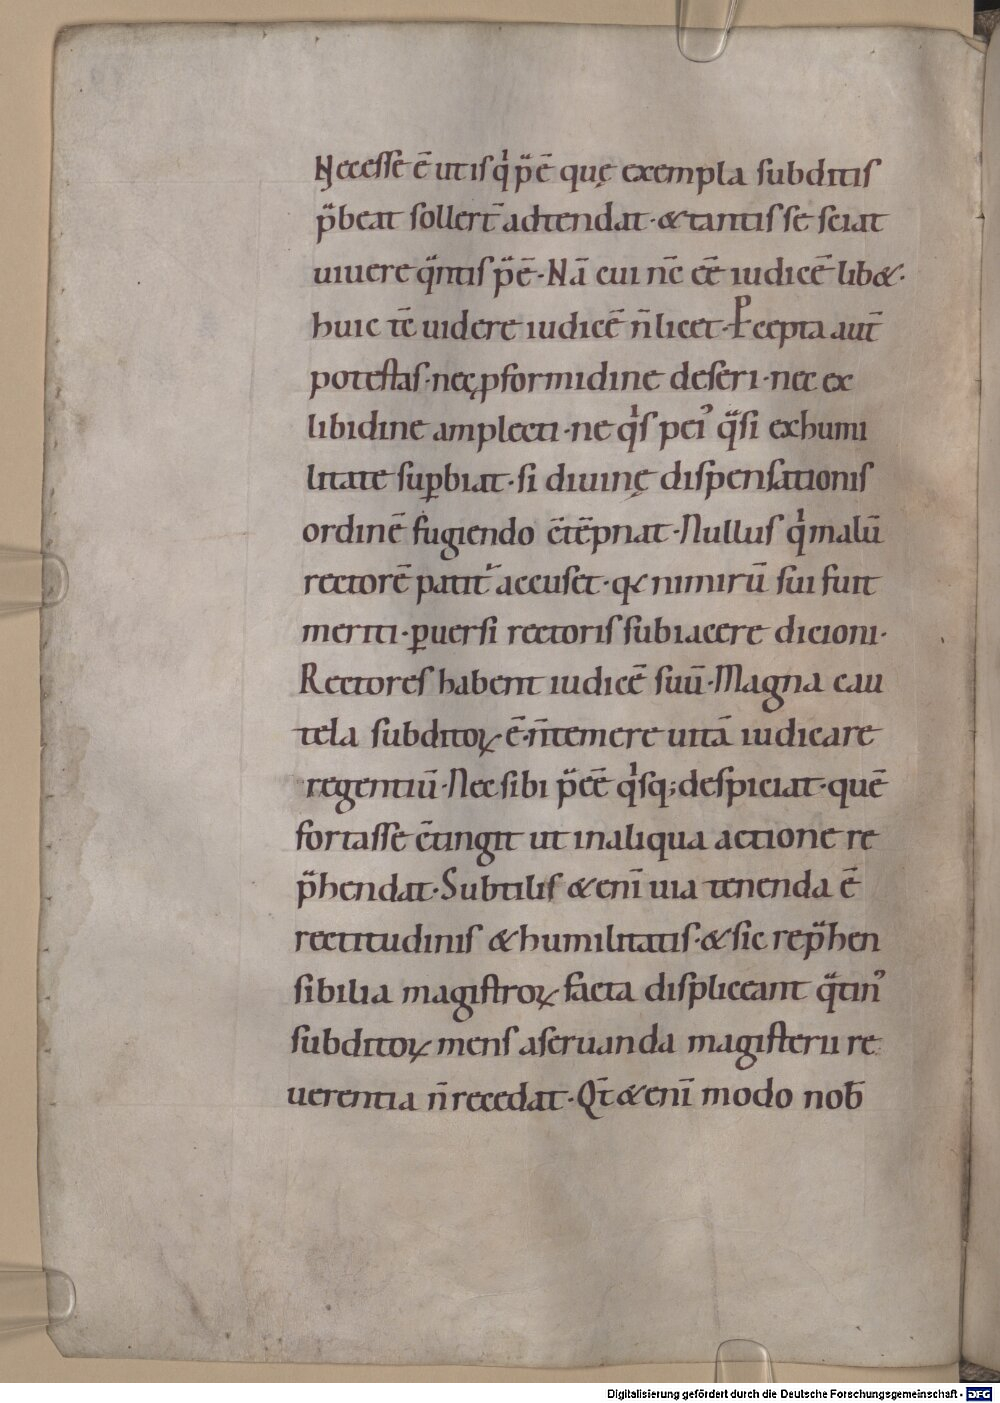 Necesse ē ut is q̇ p̄ē quę exempla subditis
p̄beat sollert̄ adtendat · & tantis se sciat
uiuere qͣntis p̄ē · Nā cui nc̄ ēē iudicē lib& ·
huic tē uidere iudicē n̄ licet · P̄cepta aut̄
potestas · nec ꝓformidine deseri · nec ex
libidine amplecti · ne qͥs pei᾿ qͣsi exhumi
litate suꝑbiat · si diuinę dispensationis
ordinē fugiendo c̄tēpnat · Nullus qͥ malū
rectorē patit᾿ accuset · qꝛ nimirū sui fuit
meriti · ꝑuersi rectoris subiacere dicioni ·
Rectores habent iudicē suū · Magna cau
tela subditoꝝ ē · n̄ temere uitā iudicare
regentiū · Nec sibi p̄eē qͥsq; despiciat · quē
fortasse c̄tingit ut inaliqua actione re
p̄hendat · Subtilis & eni᷄ uia tenenda ē
rectitudinis & humilitatis · & sic rep̄hen
sibilia magistroꝝ facta displiceant qͣtin᾿
subditoꝝ mens aseruanda magisterii re
uerentia n̄ recedat · Qt̄ & enī modo nob̄
Digitalisierung gefördert durch die Deutsche Forschungsgemeinschaft - DFG